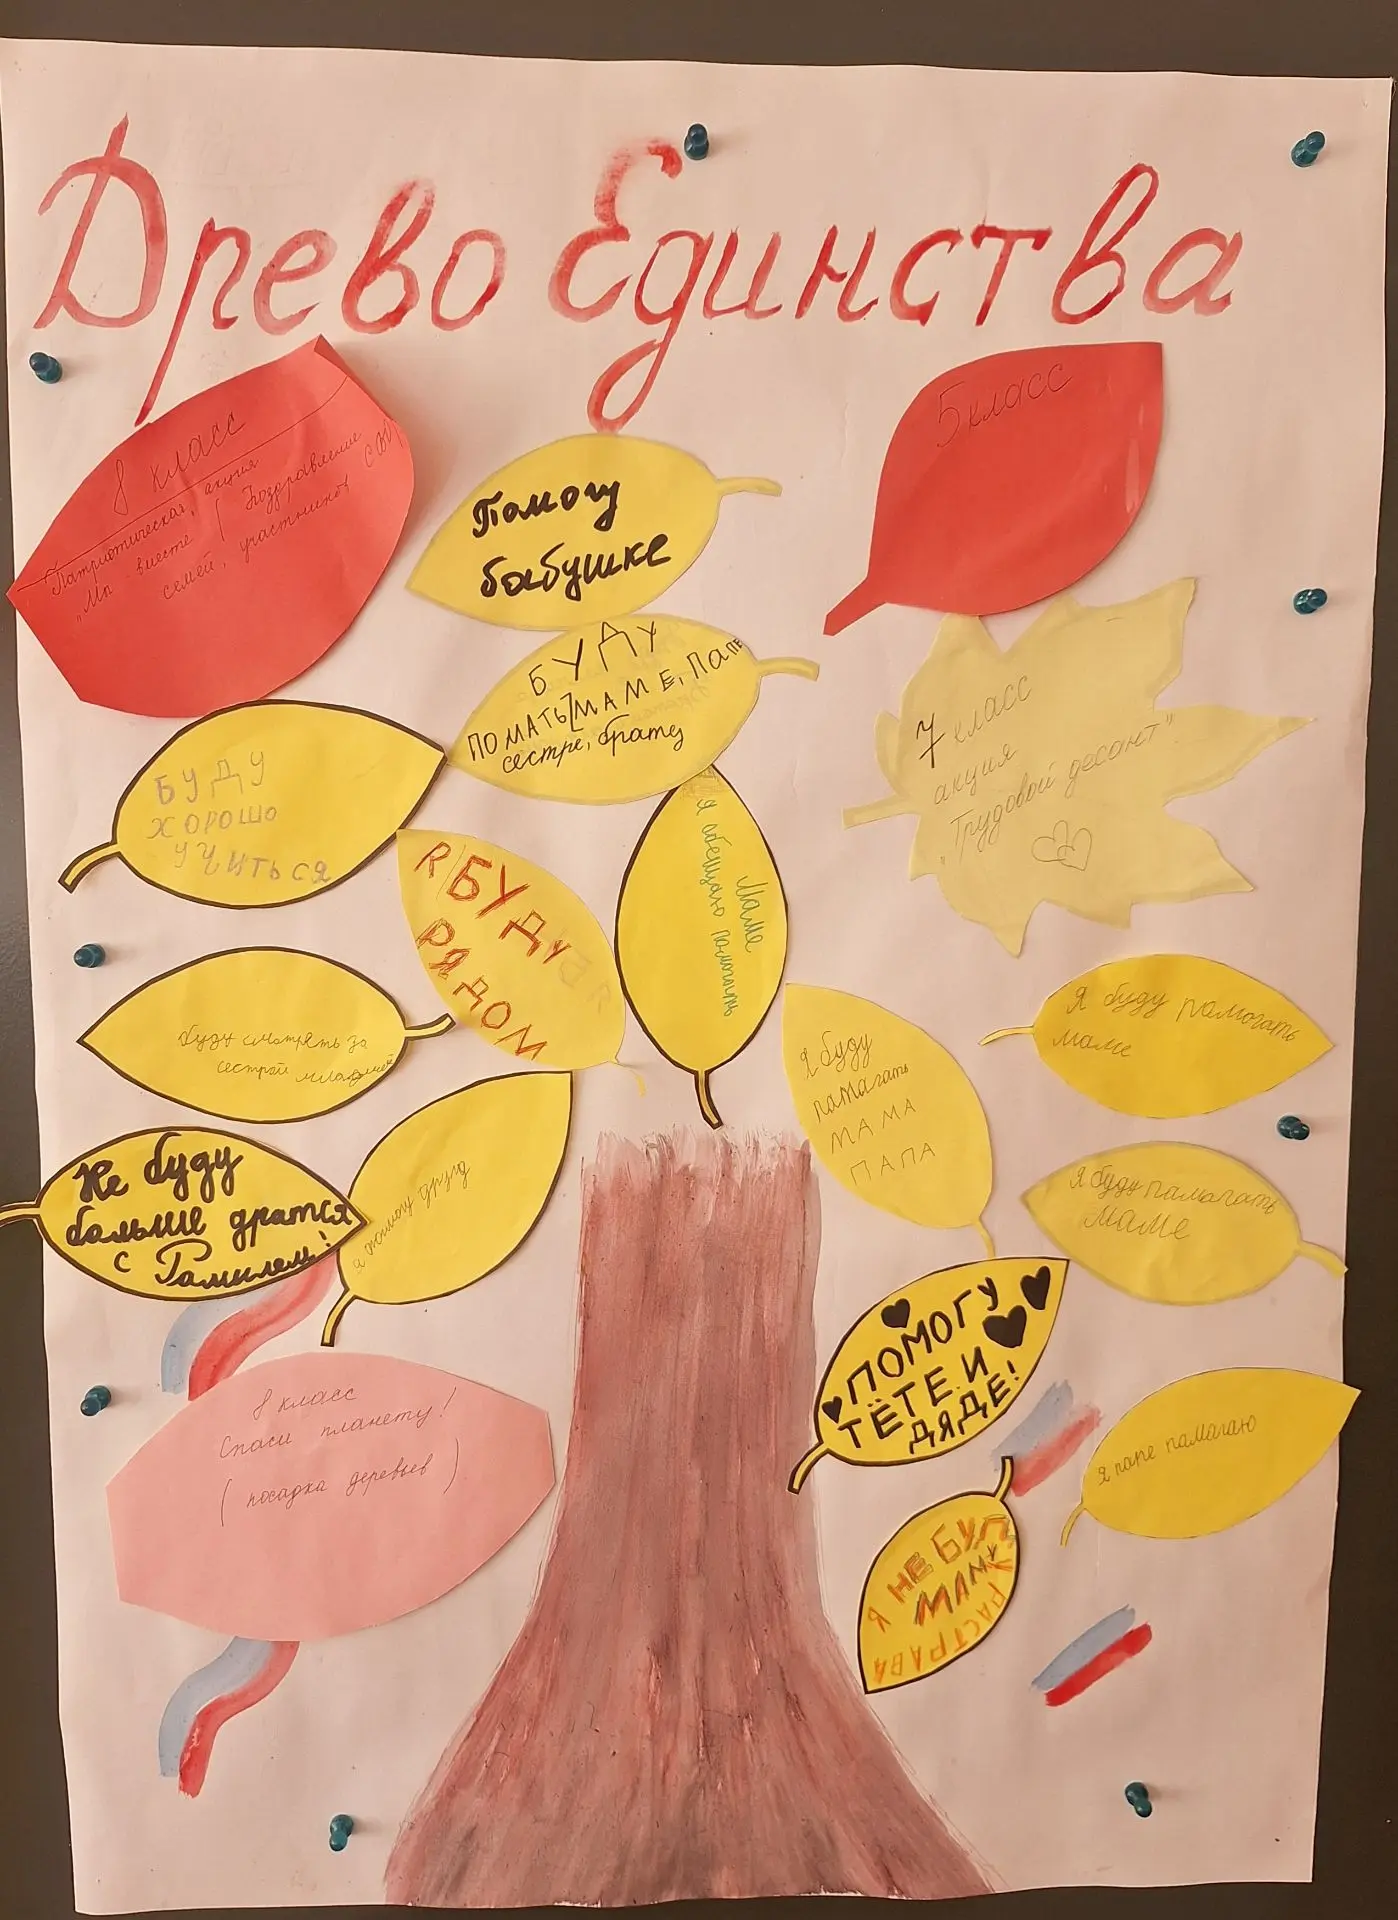 Древо Единства
8 класс
Патриотическая акция
"Мы вместе (Поздравление
семей, участников СВО
5 класс
Помогу
бабушке
БУДУ
ПОМАТЬ МАМЕ, ПАПЕ
сестре, брату
7 класс
акция
"Трудовой десант"
БУДУ
ХОРОШО
УЧИТЬСЯ
Я БУДУ
РЯДОМ
Я обещаю помогать
маме
буду смотреть за
сестрой младшей
Я буду памогать
маме
Я буду
памагать
МАМА
ПАПА
Не буду
больше дратся
с Рамилем!
я помогу другу
Я буду памагать
маме
ПОМОГУ
ТЁТЕ И
ДЯДЕ!
8 класс
Спаси планету!
(посадка деревьев)
я папе памагаю
НЕ БУДУ
МАМУ
РАСТРАВА